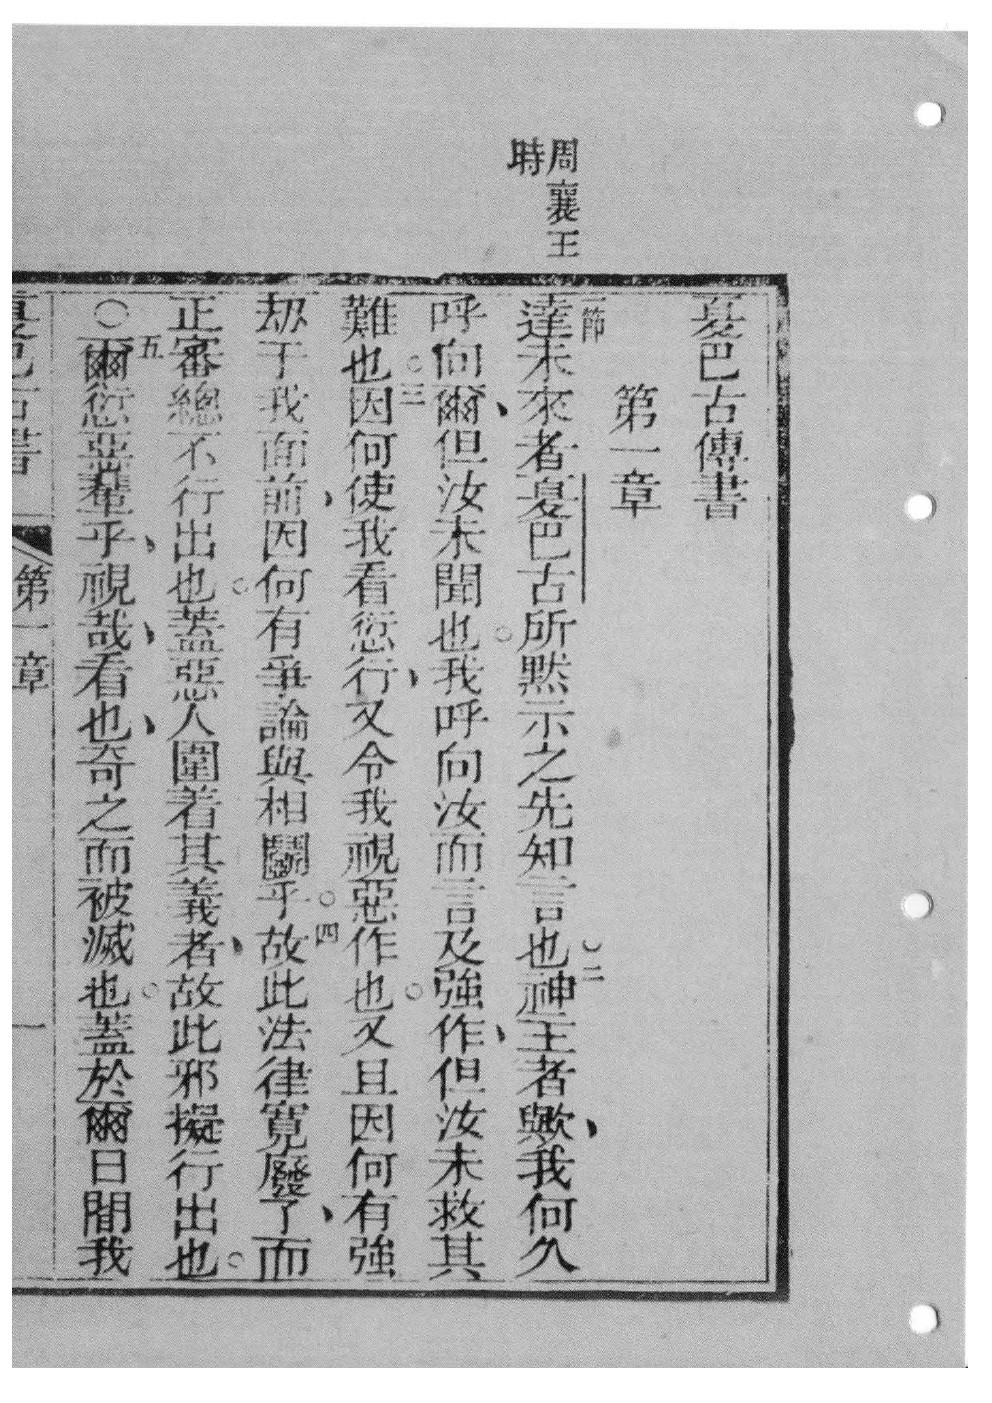 周襄王
時
戛巴古傳書
第一章
一節
達未來者戛巴古所黙示之先知言也○二神王者歟、我何久
呼向爾、但汝未聞也○我呼向汝而言及強作、但汝未救其
難也○三因何使我看愆行、又令我視惡作也○又且因何有強
刼于我面前、因何有爭論與相鬭乎○四故此法律寬廢了、而
正審總不行出也○蓋惡人圍着其義者、故此邪擬行出也○
○五爾愆惡羣乎、視哉、看也、奇之而被滅也○蓋於爾日間我
戛巴古書
第一章
一